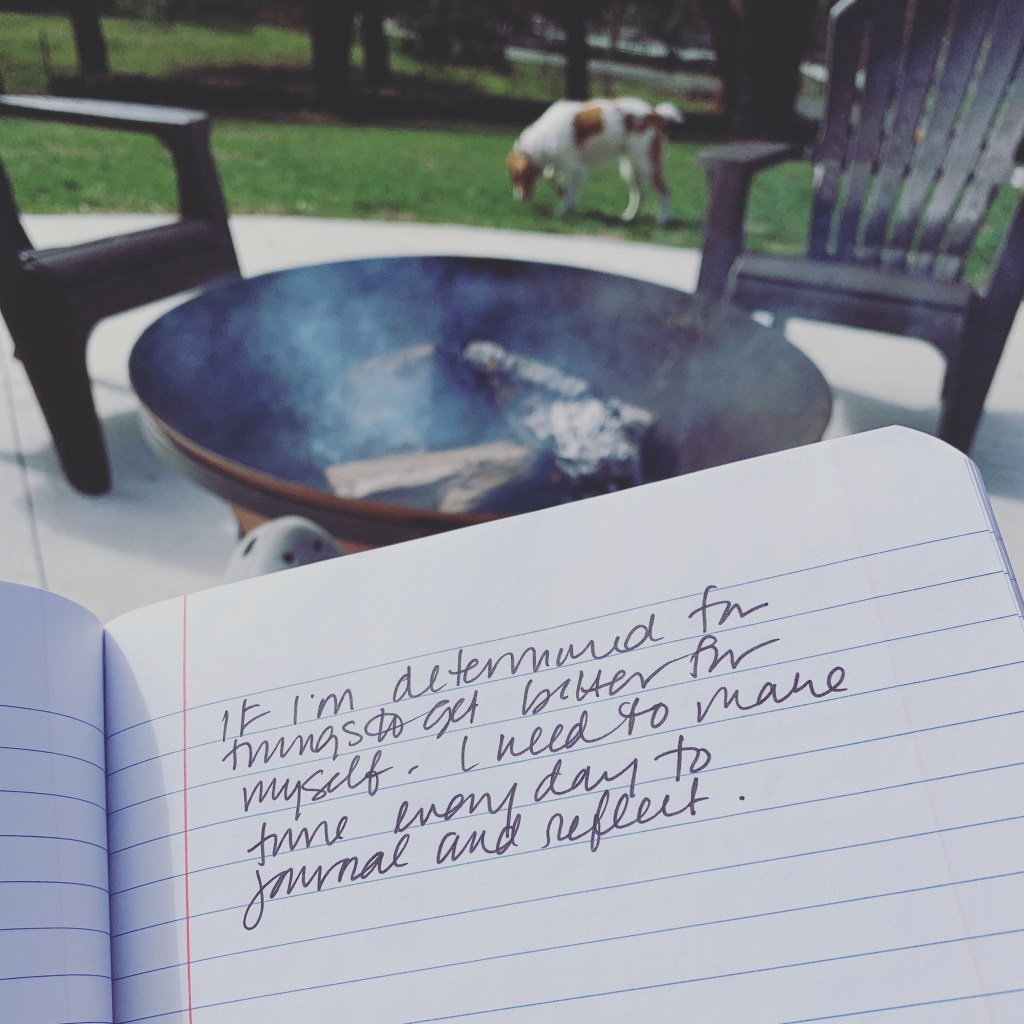 If I'm determined for
things to get better for
myself. I need to make
time every day to
journal and reflect.